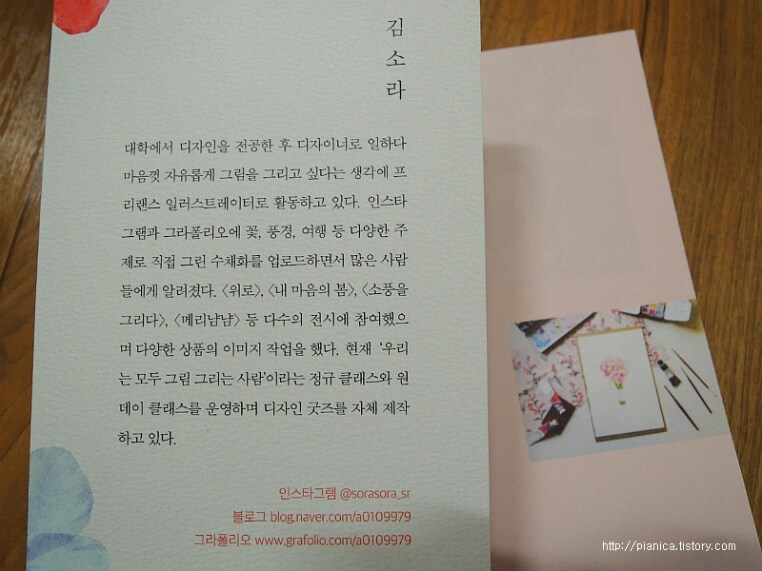 김소라
대학에서 디자인을 전공한 후 디자이너로 일하다
마음껏 자유롭게 그림을 그리고 싶다는 생각에 프
리랜스 일러스트레이터로 활동하고 있다. 인스타
그램과 그라폴리오에 꽃, 풍경, 여행 등 다양한 주
제로 직접 그린 수채화를 업로드하면서 많은 사람
들에게 알려졌다. 〈위로〉, 〈내 마음의 봄〉, 〈소풍을
그리다〉, 〈메리냠냠〉 등 다수의 전시에 참여했으
며 다양한 상품의 이미지 작업을 했다. 현재 ‘우리
는 모두 그림 그리는 사람’이라는 정규 클래스와 원
데이 클래스를 운영하며 디자인 굿즈를 자체 제작
하고 있다.
인스타그램 @sorasora_sr
블로그 blog.naver.com/a0109979
그라폴리오 www.grafolio.com/a0109979
http://pianica.tistory.com